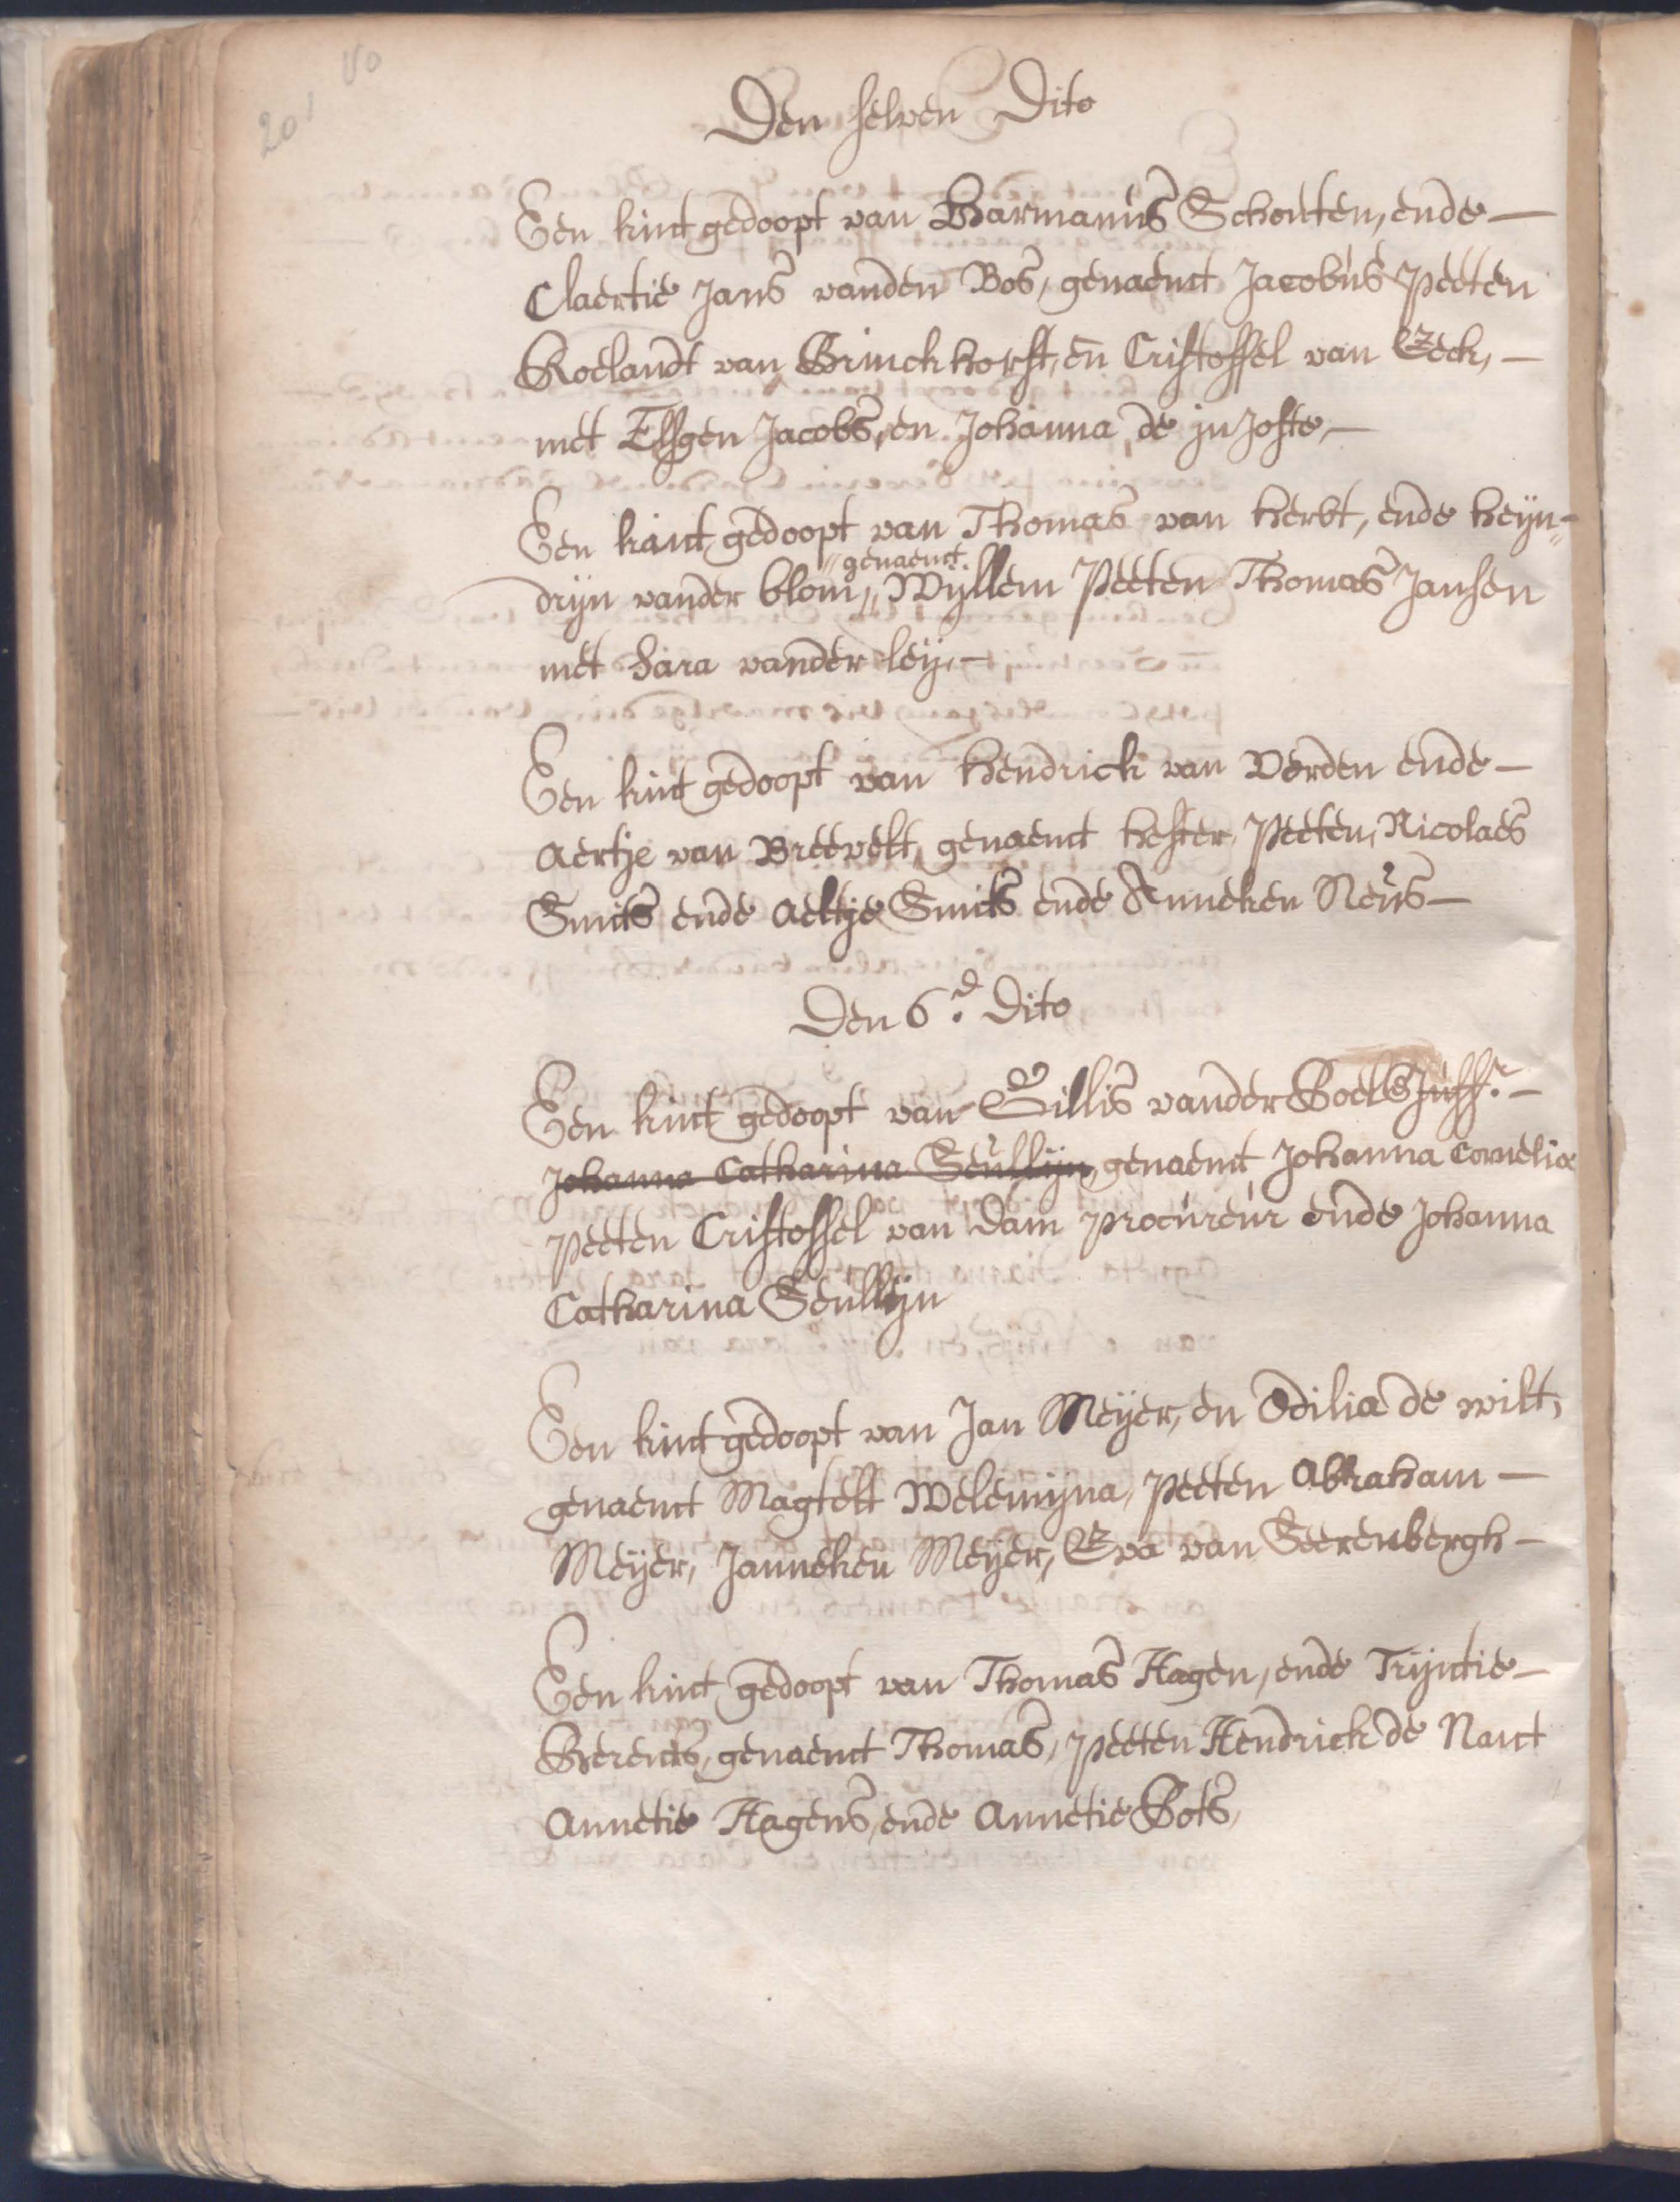 201 vo
Den selven Dito
Een kint gedoopt van Harmanus Schouten, ende
Claertie Jans vanden Bos, genaemt Jacobus Peeten
Roelandt van Brinckhorst, en Cristoffel van Eeck,
met Elsgen Jacobs, en Johanna de
Een kint gedoopt van Thomas van herbt, ende heyn-
genaemt
drijn vander blom, Wyllem Peeten Thomas Jansen
met Sara vander leij,
Een kint gedoopt van Hendrick van Vorden ende
Aertje van Breevelt, genaemt hester, Peeten, Nicolaes
Smits ende Aeltje Smits ende Anneken Neus
Den 6d. Dito
Een kint gedoopt van Gillis vander Boel Juffr.
Johanna Catharina Seullijn, genaemt Johanna Cornelia
Peeten Cristoffel van Dam Procureur ende Johanna
Catharina Seullijn
Een kint gedoopt van Jan Meijer, en Odilia de wilt,
genaemt Magtelt Welemijna, Peeten Abraham
Meijer, Janneken Meijer, Eva van Seerenbergh
Een kint gedoopt van Thomas Hagen, ende Trijntie
Berents, genaemt Thomas, Peeten Hendrick de Naut
Annetie Hagens, ende Annetie Bots,